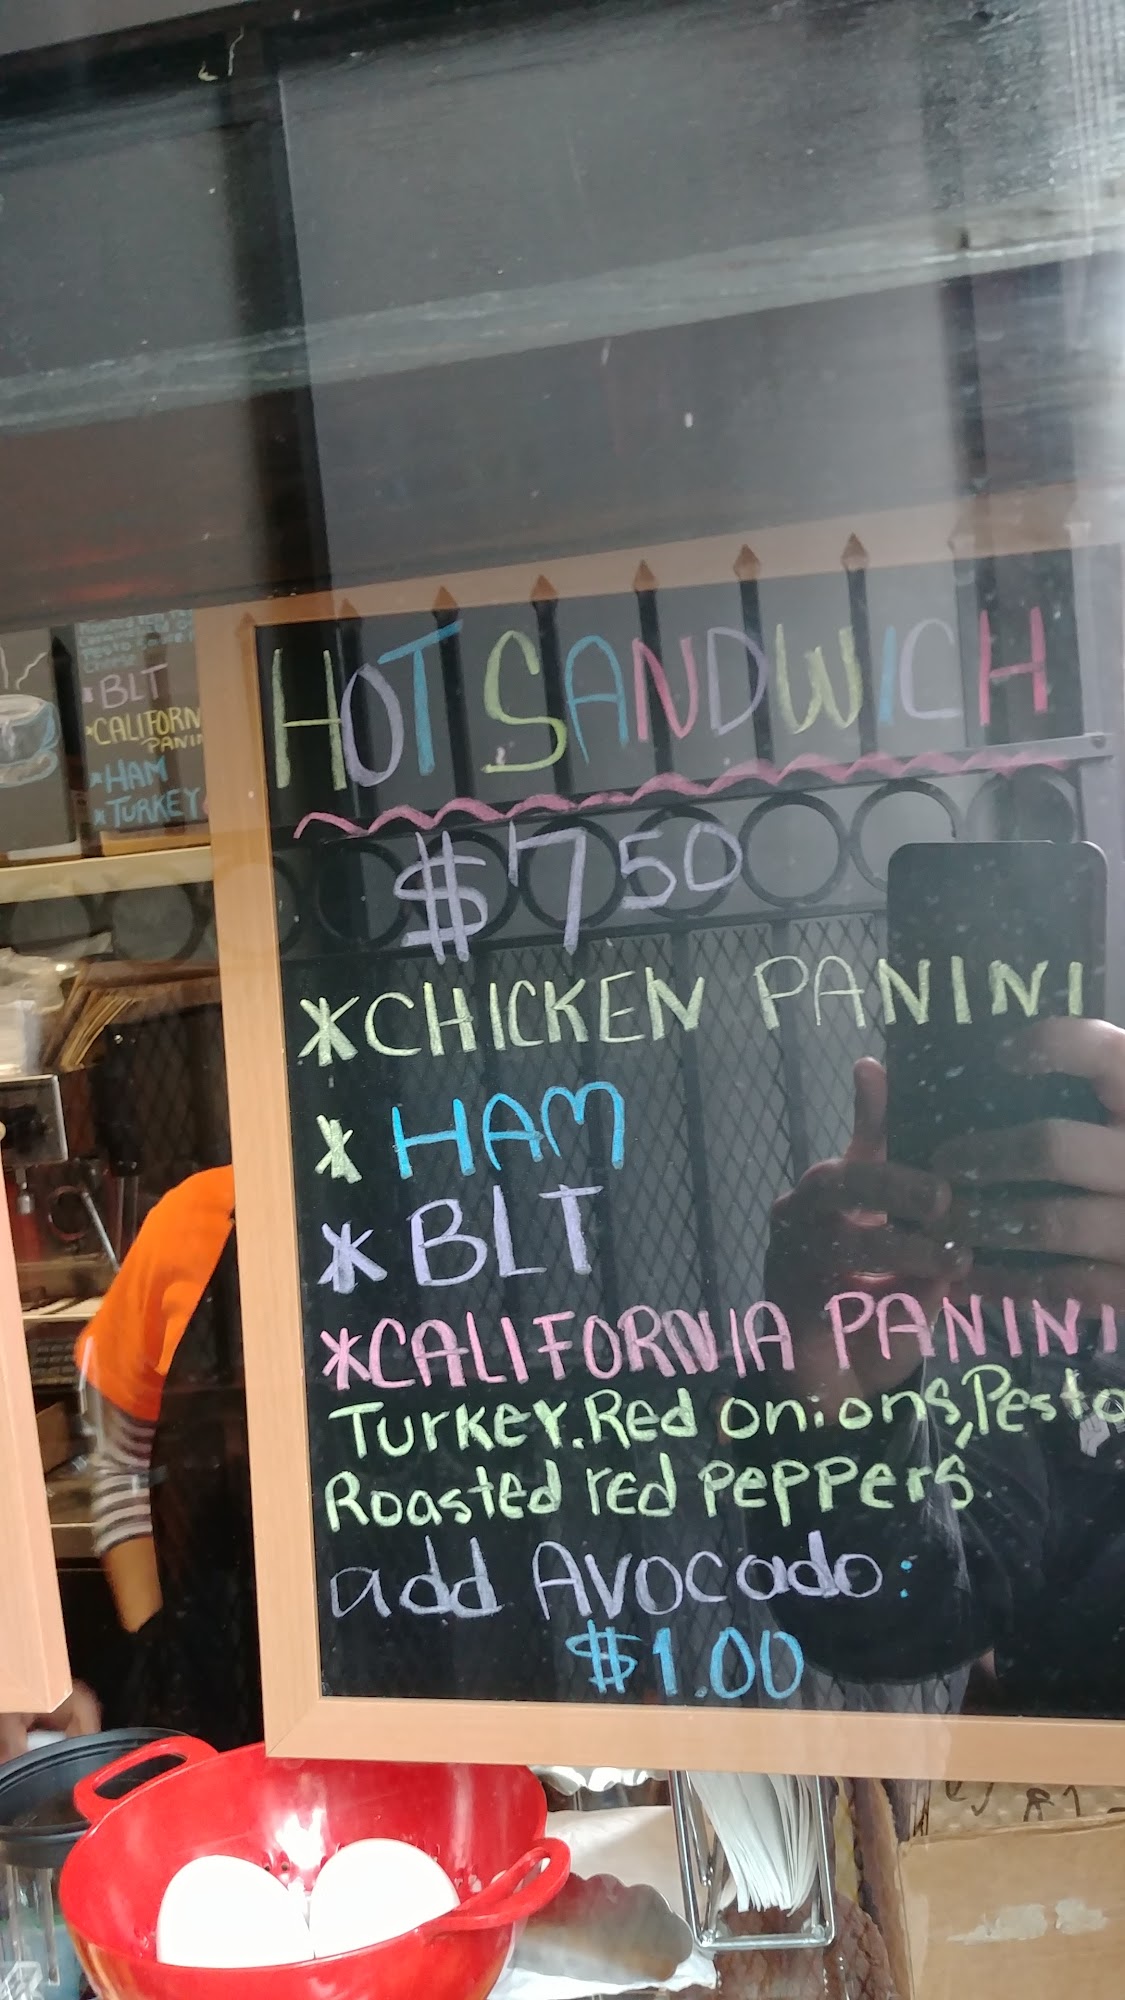 HOT SANDWICH
$7 50
*CHICKEN PANINI
* HAM
* BLT
*CALIFORNIA PANINI
Turkey. Red onions, Pesto
Roasted red peppers
add Avocado:
$1.00
Cheese
* BLT
*CALIFORN
PANIN
*HAM
*TURKEY